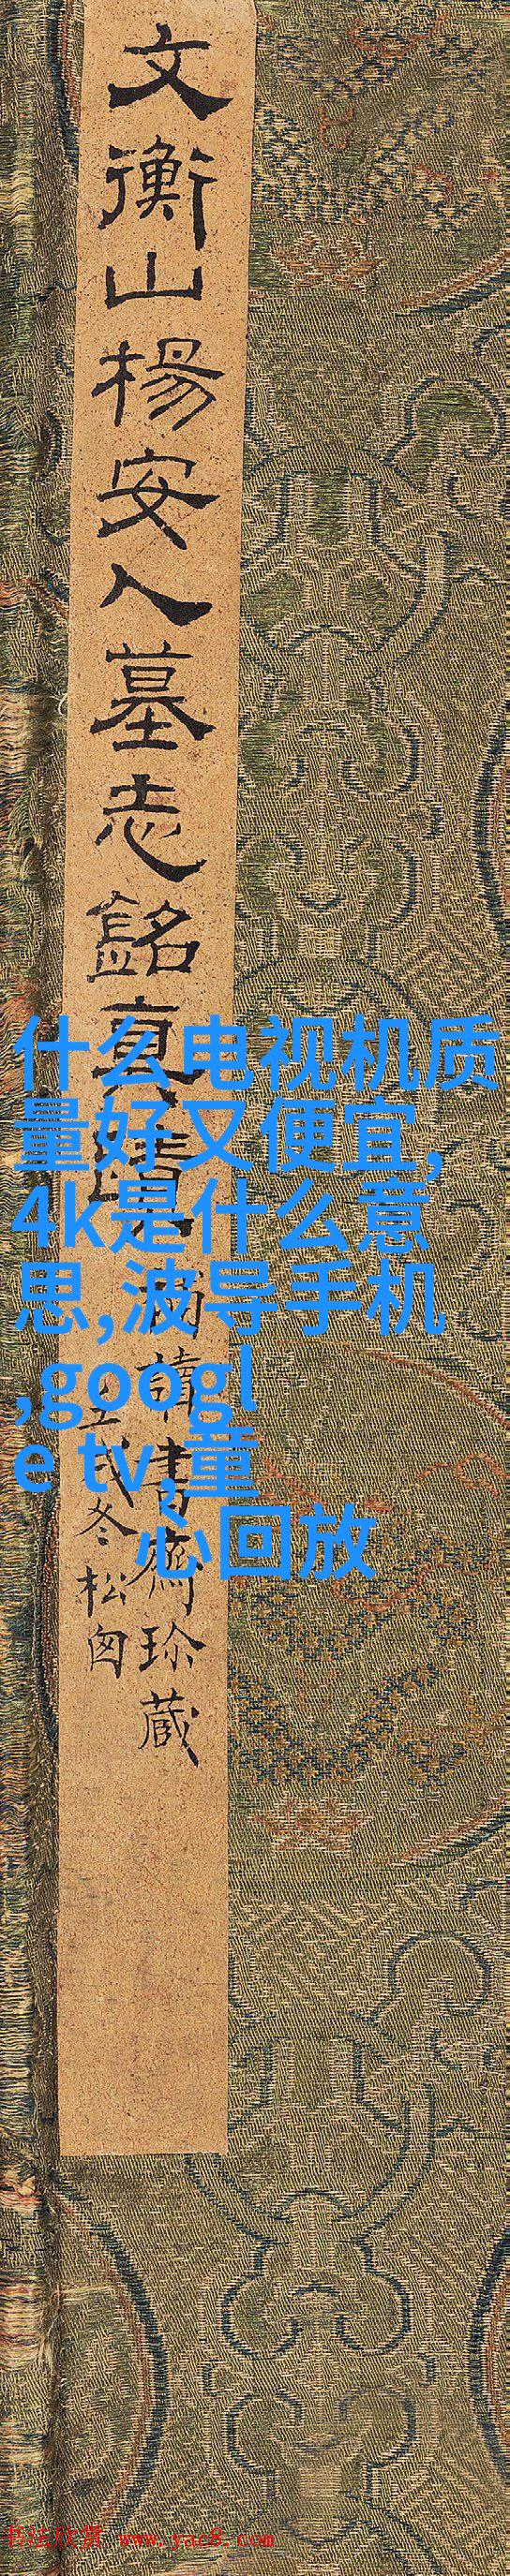 文衡山楊安人墓志銘真蹟
壬戌冬松匃
讀書齋珍蔵
什么电视机质
量好又便宜,
4k是什么意
思,波导手机
,googl
e tv,童
心回放
书法欣赏 www.yac8.com